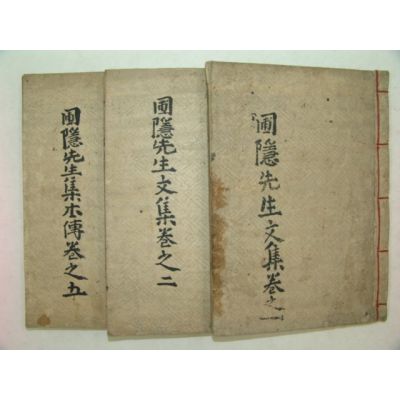 圃隱先生文集卷之一
圃隱先生文集卷之二
圃隱先生集本傳卷之五